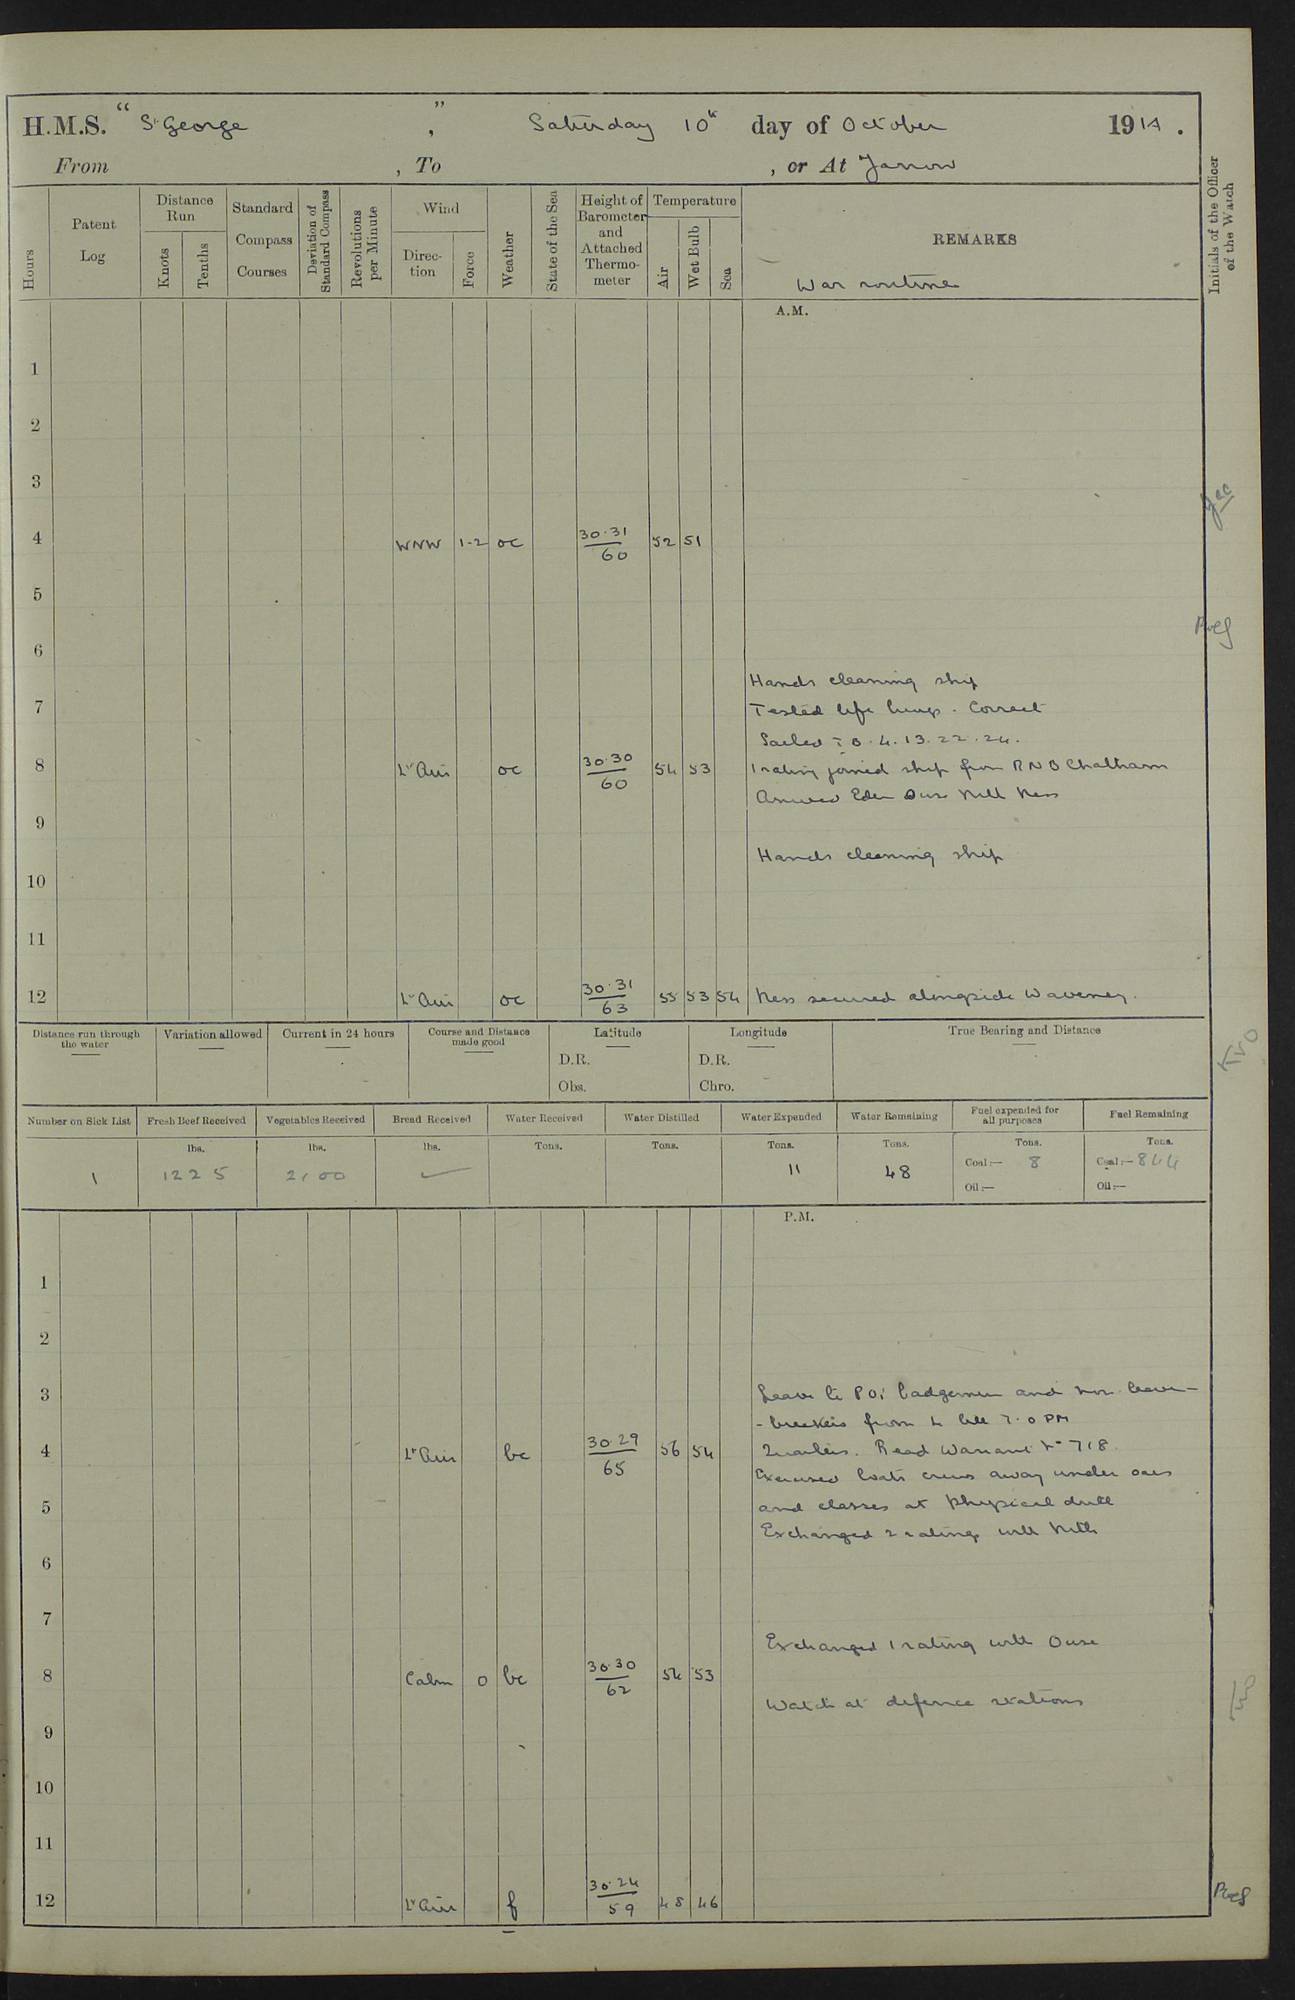 H.M.S. " St George " , Saturday 10th day of October 1914 .
From , To , or At Jarrow
Hours
Patent Log
Distance Run
Knots
Tenths
Standard Compass Courses
Deviation of Standard Compass
Revolutions per Minute
Wind
Direction
Force
Weather
State of the Sea
Height of Barometer and Attached Thermometer
Temperature
Air
Wet Bulb
Sea
REMARKS
War routine
Initials of the Officer of the Watch
A.M.
1
2
3
4 WNW 1-2 oc 30.31/60 52 51
5
6
Hands cleaning ship
7 Tested life buoys. Correct
Sailed T.B. 4. 13. 22. 24.
8 Lt Airs oc 30.30/60 54 53 1 rating joined ship from RNB Chatham
Arrived Eden Ouse Nith Ness
9
Hands cleaning ship
10
11
12 Lt Airs oc 30.31/63 55 53 54 Ness secured alongside Waveney.
Distance run through the water
Variation allowed
Current in 24 hours
Course and Distance made good
Latitude
D.R.
Obs.
Longitude
D.R.
Chro.
True Bearing and Distance
Number on Sick List 1
Fresh Beef Received lbs. 1225
Vegetables Received lbs. 2100
Bread Received lbs. ✓
Water Received Tons.
Water Distilled Tons.
Water Expended Tons. 11
Water Remaining Tons. 48
Fuel expended for all purposes Tons. Coal:— 8 Oil:—
Fuel Remaining Tons. Coal:— 844 Oil:—
P.M.
1
2
3 Leave to POs badgemen and non leave-
-breakers from 4 till 7.0 PM
4 Lt Airs bc 30.29/65 56 54 Quarters. Read Warrant No 718.
Exercised boats crews away under oars
5 and classes at Physical drill
Exchanged 2 ratings with Nith
6
7
Exchanged 1 rating with Ouse
8 Calm 0 bc 30.30/62 54 53
Watch at defence stations
9
10
11
12 Lt Airs f 30.24/59 48 46